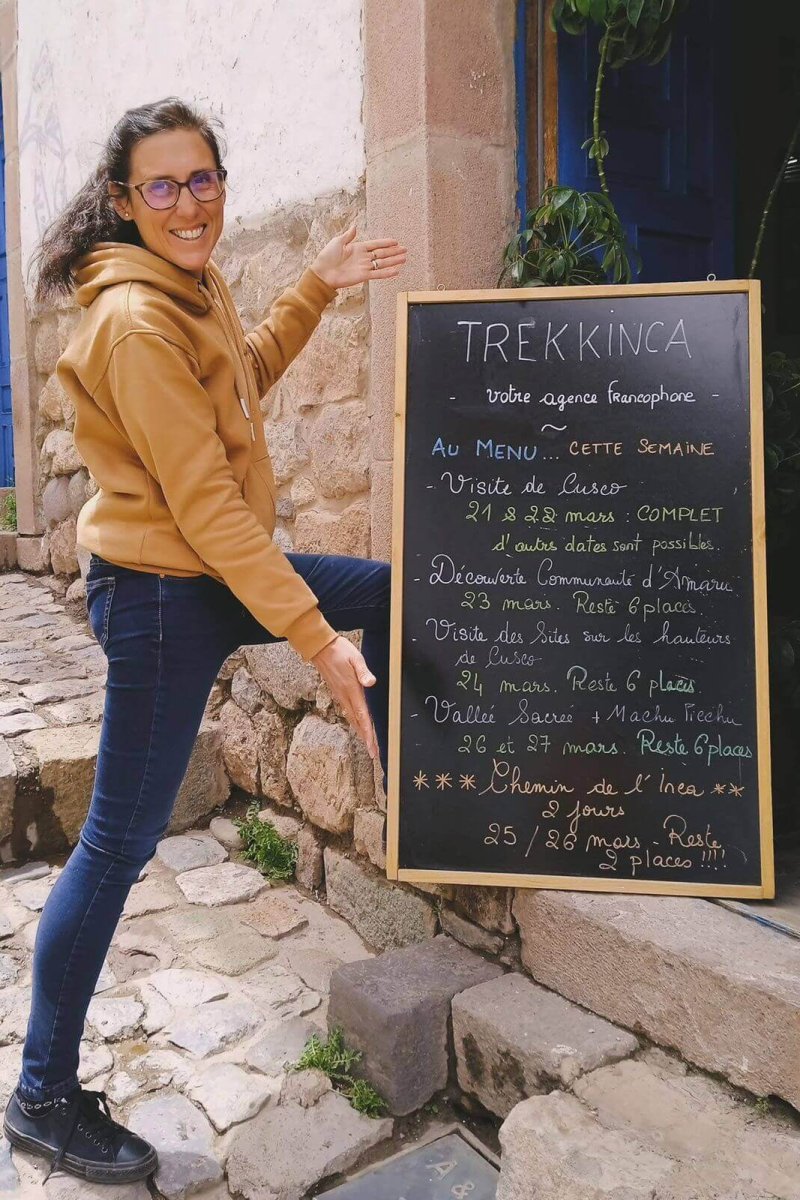 TREKKINCA
- votre agence francophone -
~
AU MENU... CETTE SEMAINE
- Visite de Cusco
21 & 22 mars : COMPLET
d'autres dates sont possibles.
- Découverte Communauté d'Amaru
23 mars. Reste 6 places.
- Visite des Sites sur les hauteurs
de Cusco
24 mars. Reste 6 places.
- Vallée Sacrée + Machu Picchu
26 et 27 mars. Reste 6 places
*** Chemin de l'Inca **
2 jours
25/26 mars - Reste
2 places !!!!
A
&